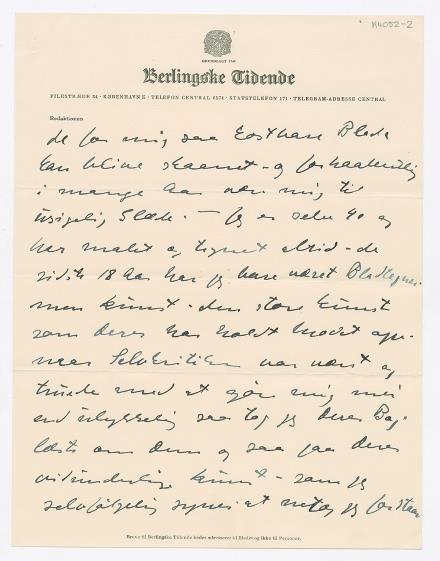 K4052-2
GRUNDLAGT 1749
Berlingske Tidende
PILESTRÆDE 34 · KØBENHAVN K · TELEFON CENTRAL 8571 · STATSTELEFON 171 · TELEGRAM-ADRESSE CENTRAL
Redaktionen
de for mig saa kostbare Blade
kan blive skaanet - og forhaabentlig
i mange Aar være mig til
usigelig Glæde. — Jeg er selv 40 og
har malet og tegnet altid - de
sidste 18 Aar har jeg bare været Bladtegner
men kunst - den store kunst
som deres har holdt modet oppe
naar Selvkritiken var værst og
truede med at gøre mig mere
end ulykkelig saa tog jeg deres Bog
læste om dem og saa paa deres
vidunderlige kunst - som jeg
selvfølgelig synes at netop jeg forstaar
Breve til Berlingske Tidende bedes adresseret til Bladet og ikke til Personer.